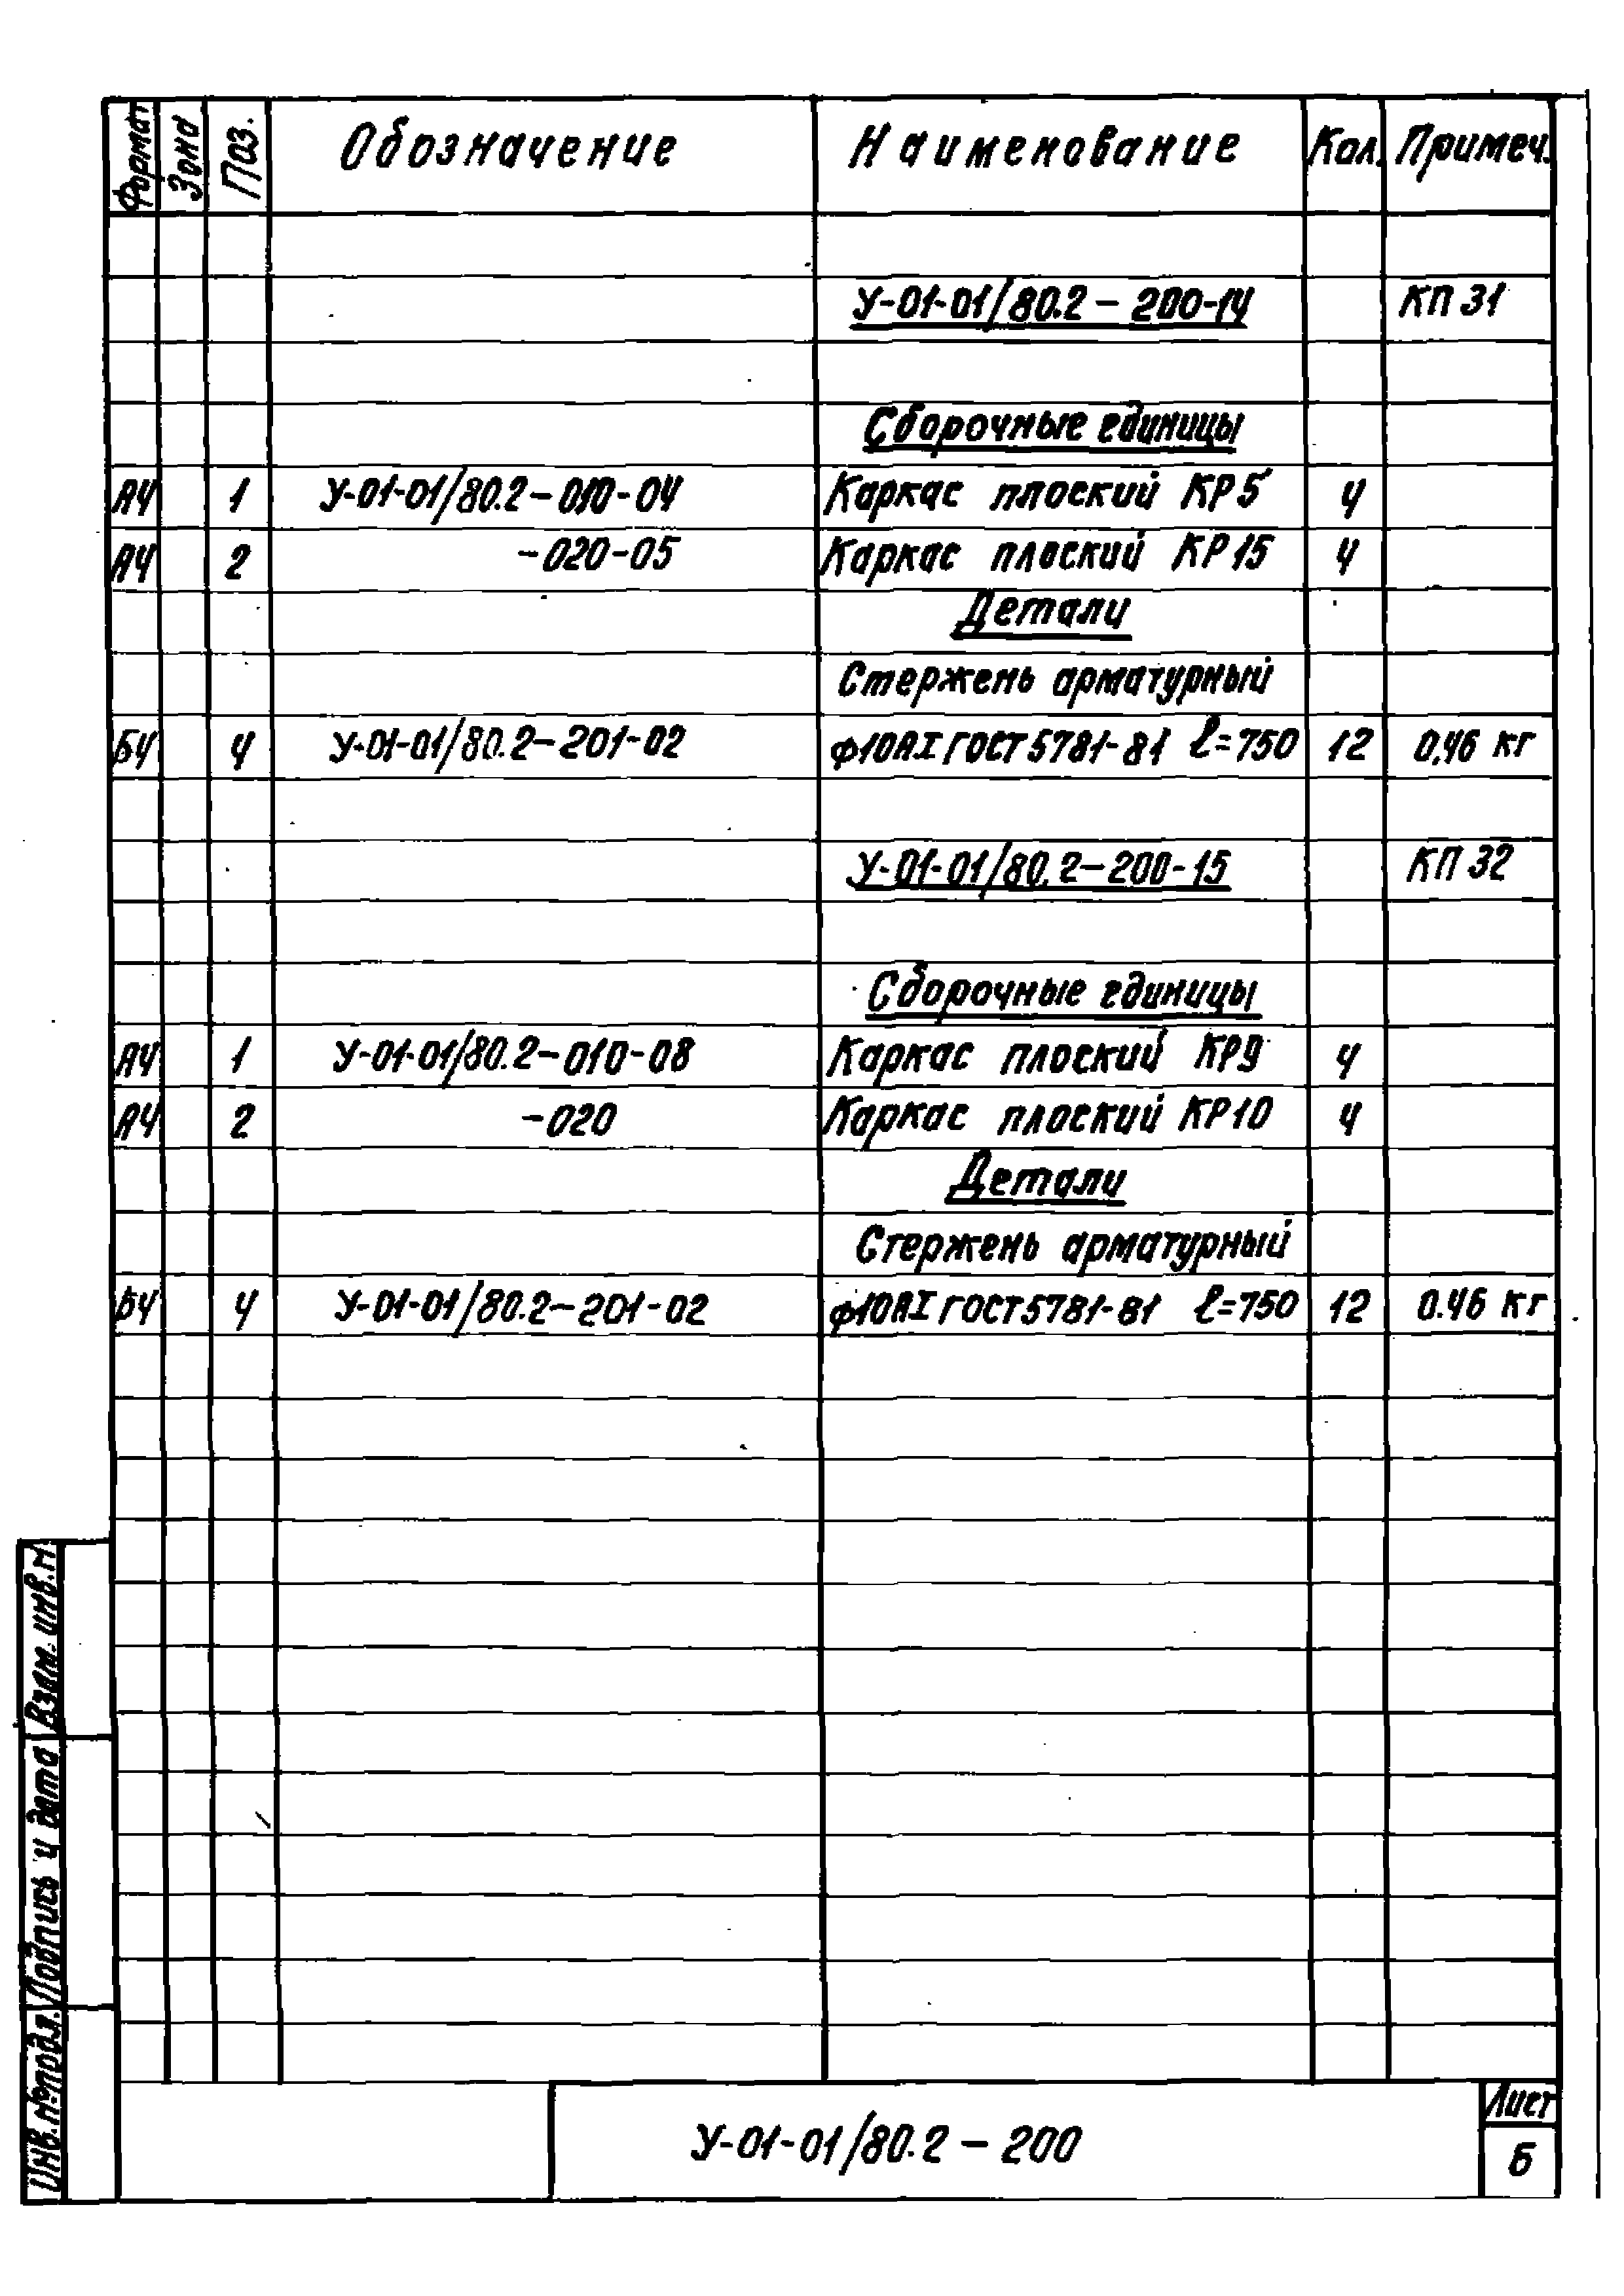 Формат Зона Поз. Обозначение Наименование Кол. Примеч.
У-01-01/80.2-200-14 КП 31
Сборочные единицы
А4 1 У-01-01/80.2-010-04 Каркас плоский КР5 4
А4 2 -020-05 Каркас плоский КР15 4
Детали
Стержень арматурный
БЧ 4 У-01-01/80.2-201-02 ф10АI ГОСТ 5781-81 ℓ=750 12 0,46 кг
У-01-01/80.2-200-15 КП 32
Сборочные единицы
А4 1 У-01-01/80.2-010-08 Каркас плоский КР9 4
А4 2 -020 Каркас плоский КР10 4
Детали
Стержень арматурный
БЧ 4 У-01-01/80.2-201-02 ф10АI ГОСТ 5781-81 ℓ=750 12 0.46 кг
Взам. инв. №
Подпись и дата
Инв. № подл.
У-01-01/80.2-200
Лист
6